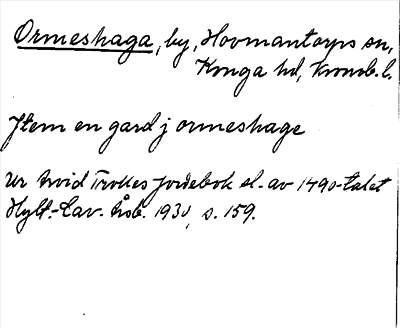 Ormeshaga, by, Hovmantorps sn,
Konga hd, Kronob. l.
Jtem en gard j ormeshage
Ur Arvid Trolles jordebok sl. av 1490-talet
Hylt.-Cav. årsb. 1930, s. 159.